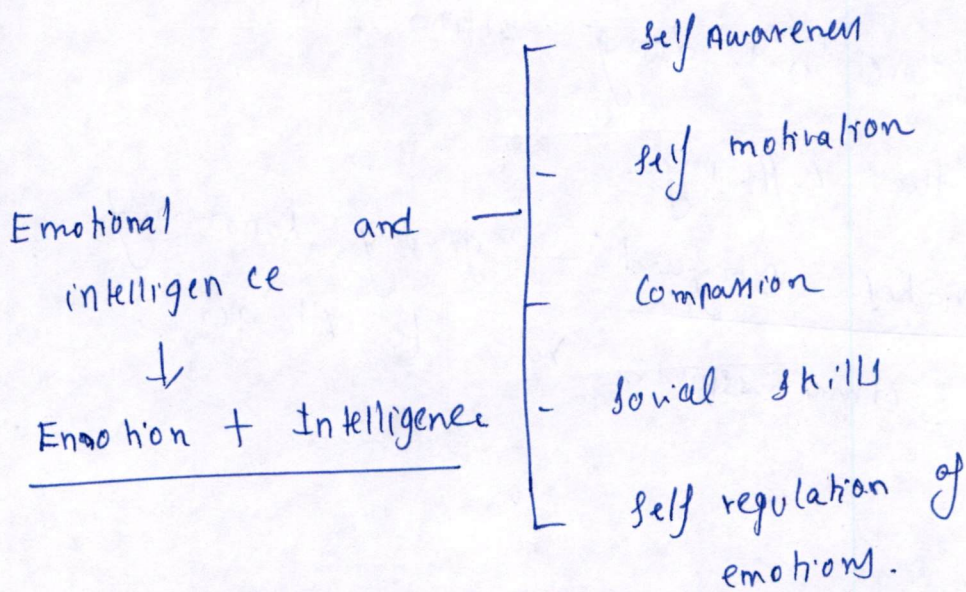 Emotional and
intelligence
↓
Emotion + Intelligence
Self Awareness
Self motivation
Compassion
Social skills
Self regulation of
emotions.